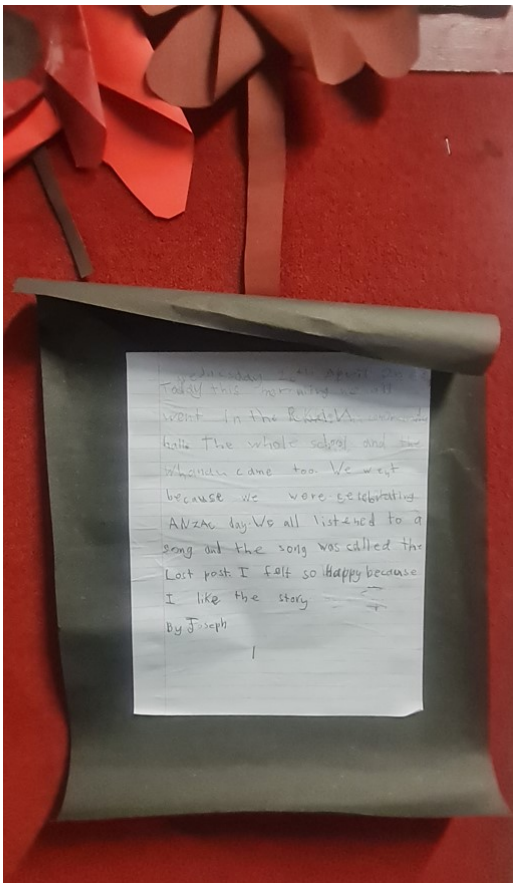 Wednesday April
Today this morning we all
went in the
halls The whole school and the
Whanau came too. We went
because we were selebrtating
ANZAC day. We all listened to a
song and the song was called the
Lost post. I felt so Happy because
I like the story
By Joseph